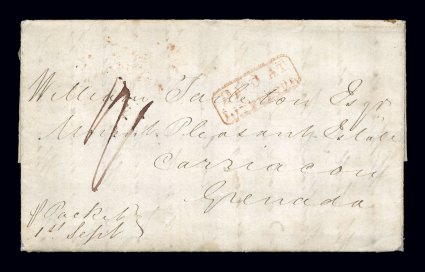 William Tarleton Esqr
Mount Pleasant Estate
Carriacou
Grenada
1/
pr Packet
1st Sept